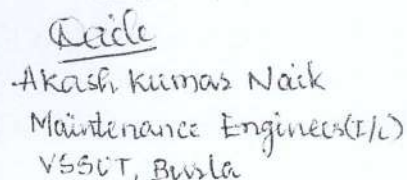 Akash Kumar Naik
Maintenance Engineer (I/c)
VSSUT, Burla